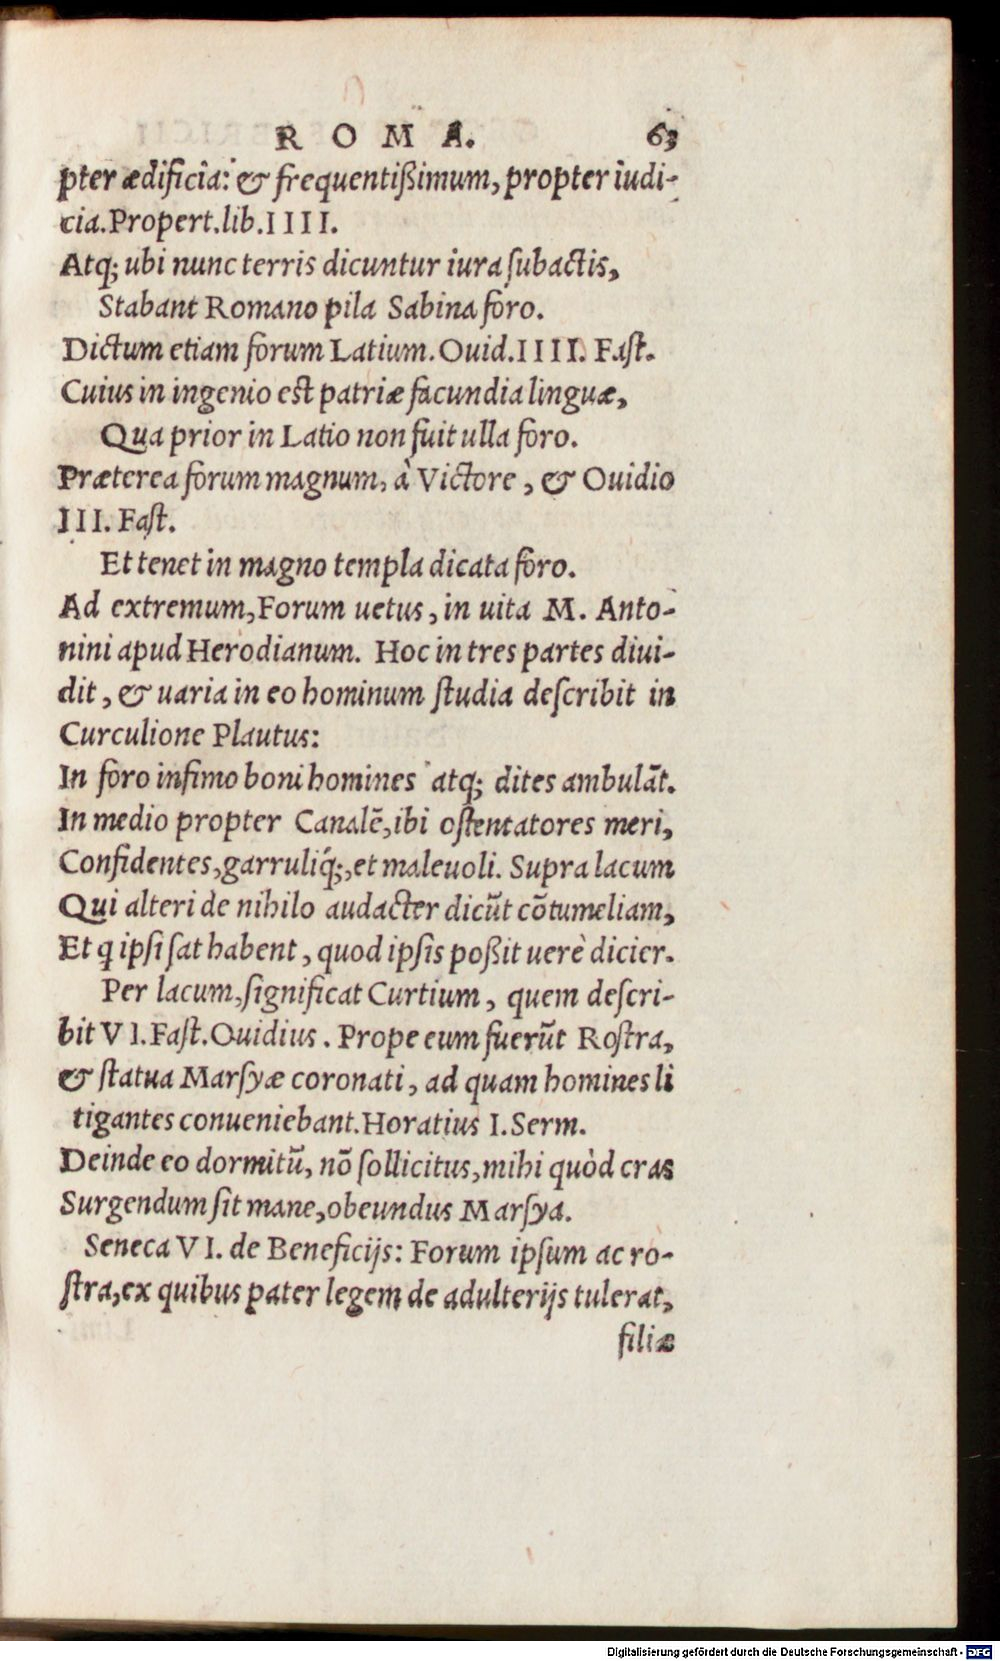 ROMA. 63
pter ædificia: & frequentißimum, propter iudi-
cia. Propert. lib. IIII.
Atq; ubi nunc terris dicuntur iura ſubactis,
Stabant Romano pila Sabina foro.
Dictum etiam forum Latium. Ouid. IIII. Faſt.
Cuius in ingenio est patriæ facundia linguæ,
Qua prior in Latio non fuit ulla foro.
Præterea forum magnum, à Victore, & Ouidio
III. Faſt.
Et tenet in magno templa dicata foro.
Ad extremum, Forum uetus, in uita M. Anto-
nini apud Herodianum. Hoc in tres partes diui-
dit, & uaria in eo hominum ſtudia deſcribit in
Curculione Plautus:
In foro infimo boni homines atq; dites ambulãt.
In medio propter Canalẽ, ibi oſtentatores meri,
Confidentes, garruliq́;, et maleuoli. Supra lacum
Qui alteri de nihilo audacter dicũt cõtumeliam,
Et q ipſi ſat habent, quod ipſis poßit uerè dicier.
Per lacum, ſignificat Curtium, quem deſcri-
bit VI. Faſt. Ouidius. Prope eum fuerũt Roſtra,
& ſtatua Marſyæ coronati, ad quam homines li
tigantes conueniebant. Horatius I. Serm.
Deinde eo dormitũ, nõ ſollicitus, mihi quòd cras
Surgendum ſit mane, obeundus Marſya.
Seneca VI. de Beneficijs: Forum ipſum ac ro-
ſtra, ex quibus pater legem de adulterijs tulerat,
filiæ
Digitalisierung gefördert durch die Deutsche Forschungsgemeinschaft - DFG